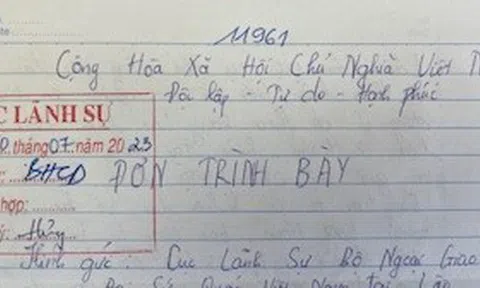 11961
Cộng Hòa Xã Hội Chủ Nghĩa Việt N
Độc lập - Tự do - Hạnh phúc
C LÃNH SỰ
tháng 07 năm 2023
BHCD
ĐƠN TRÌNH BÀY
hợp:
Hưng
Kính gửi: Cục Lãnh Sự Bộ Ngoại Giao
Đại Sứ Quán Việt Nam tại Lào